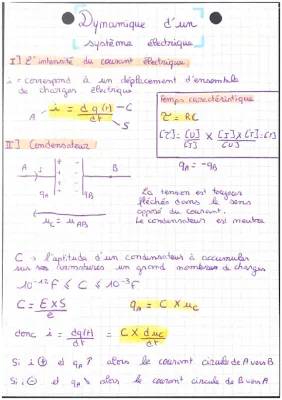 Dynamique d'un
système électrique
I] L'intensité du courant électrique
i = correspond à un déplacement d'ensemble
de charges électrique
A i = dq(t)/dt - C
s
Temps caractéristique
τ = RC
[τ] = [U]/[I] × [I]×[T]/[U] = [T]
II] Condensateur:
A i + - B
qA qB
qA = -qB
uC = uAB
La tension est toujours
fléchée dans le sens
opposé du courant.
Le condensateur est neutre
C → l'aptitude d'un condensateur à accumuler
sur ses armatures un grand nombre de charges
10⁻¹²F ≤ C ≤ 10⁻³F
C = E × S / e qA = C × uC
donc i = dq(t)/dt = C × duC/dt
Si i ⊕ et qA ↗ alors le courant circule de A vers B
Si i ⊖ et qA ↘ alors le courant circule de B vers A